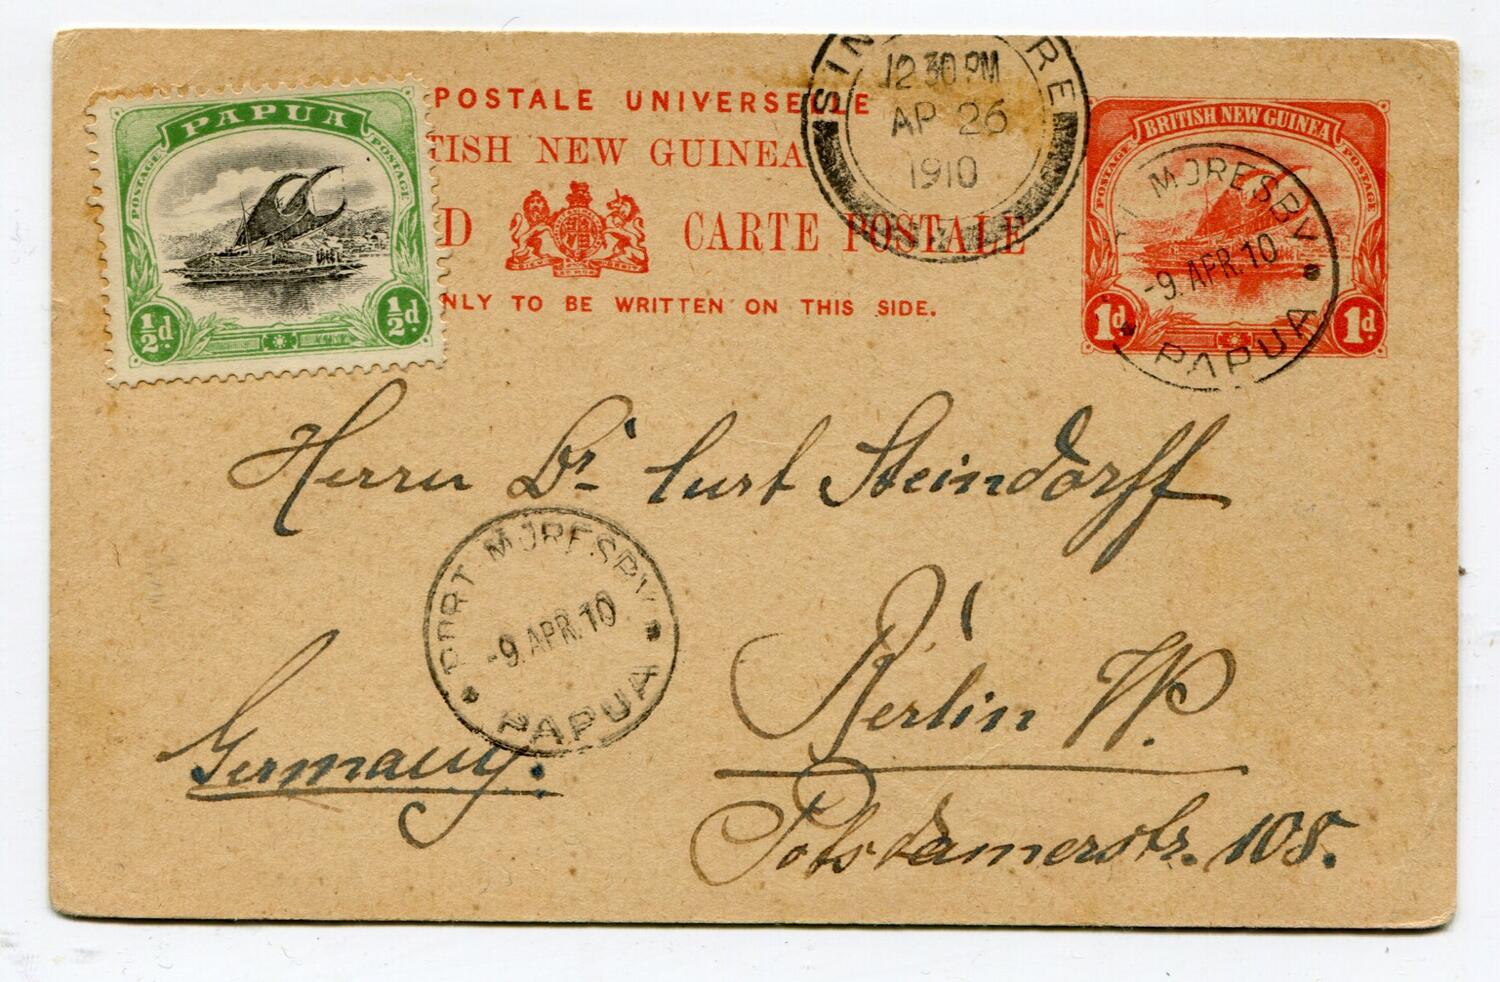 PAPUA
POSTAGE
POSTAGE
½d
½d
POSTALE UNIVERSELLE
TISH NEW GUINEA
D CARTE POSTALE
NLY TO BE WRITTEN ON THIS SIDE.
12 30 PM
AP 26
1910
BRITISH NEW GUINEA
POSTAGE
POSTAGE
1d
1d
MORESBY
-9.APR.10
PAPUA
Herrn Dr Curt Steindorff
PORT MORESBY
-9.APR.10
PAPUA
Berlin W.
Germany.
Potsdamerstr. 108.